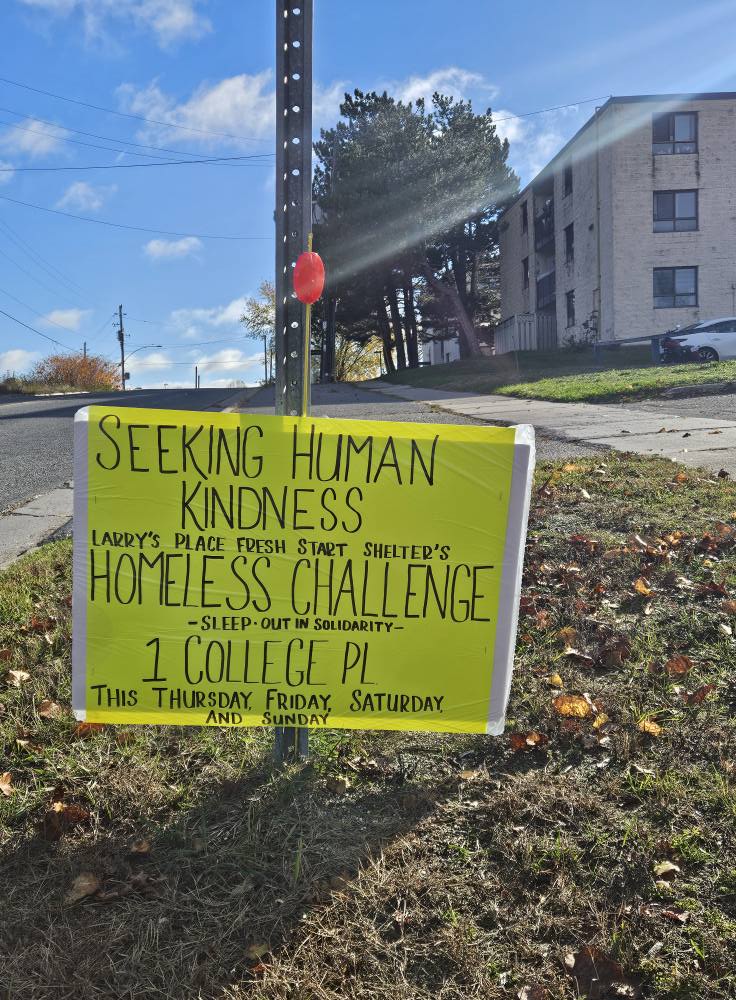 SEEKING HUMAN
KINDNESS
LARRY'S PLACE FRESH START SHELTER'S
HOMELESS CHALLENGE
- SLEEP-OUT IN SOLIDARITY -
1 COLLEGE PL
THIS THURSDAY, FRIDAY, SATURDAY,
AND SUNDAY